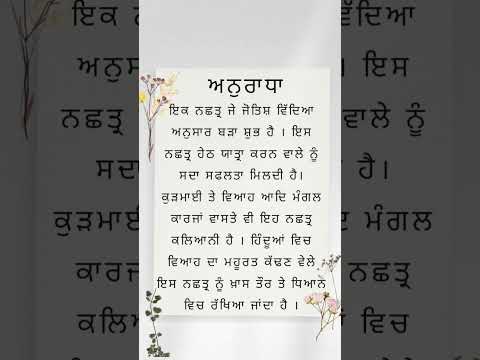 ਅਨੁਰਾਧਾ
ਇਕ ਨਛਤ੍ਰ ਜੇ ਜੋਤਿਸ਼ ਵਿੱਦਿਆ
ਅਨੁਸਾਰ ਬੜਾ ਸ਼ੁਭ ਹੈ । ਇਸ
ਨਛਤ੍ਰ ਹੇਠ ਯਾਤ੍ਰਾ ਕਰਨ ਵਾਲੇ ਨੂੰ
ਸਦਾ ਸਫਲਤਾ ਮਿਲਦੀ ਹੈ।
ਕੁੜਮਾਈ ਤੇ ਵਿਆਹ ਆਦਿ ਮੰਗਲ
ਕਾਰਜਾਂ ਵਾਸਤੇ ਵੀ ਇਹ ਨਛਤ੍ਰ
ਕਲਿਆਨੀ ਹੈ । ਹਿੰਦੂਆਂ ਵਿਚ
ਵਿਆਹ ਦਾ ਮਹੂਰਤ ਕੱਢਣ ਵੇਲੇ
ਇਸ ਨਛਤ੍ਰ ਨੂੰ ਖ਼ਾਸ ਤੌਰ ਤੇ ਧਿਆਨ
ਵਿਚ ਰੱਖਿਆ ਜਾਂਦਾ ਹੈ ।